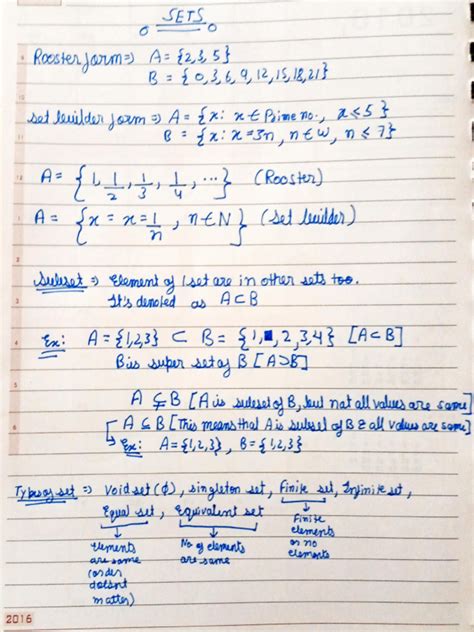 SETS
Rooster form ⇒ A = {2,3,5}
B = {0,3,6,9,12,15,18,21}
set builder form ⇒ A = {x: x ∈ Prime no., x ≤ 5}
B = {x: x = 3n, n ∈ W, n ≤ 7}
A = {1, 1/2, 1/3, 1/4, ...} (Rooster)
A = {x = x = 1/n, n ∈ N} (set builder)
Subset ⇒ Element of 1 set are in other sets too.
It's denoted as A ⊂ B
Ex: A = {1,2,3} ⊂ B = {1, 2, 3, 4} [A ⊂ B]
B is super set of B [A ⊃ B]
A ⊊ B [A is subset of B, but not all values are same]
A ⊆ B [This means that A is subset of B & all values are same]
Ex: A = {1,2,3}, B = {1,2,3}
Types of set ⇒ Void set (ϕ), singleton set, Finite set, Infinite set,
Equal set, Equivalent set
Elements are same (order doesnt matter)
No. of elements are same
Finite elements or no elements
2016